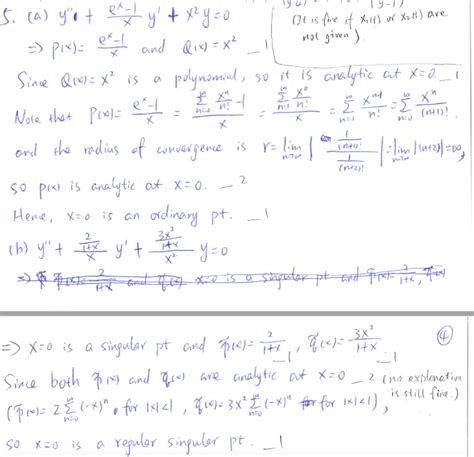 (y-1)
5. (a) y'' + \frac{e^x-1}{x} y' + x^2 y = 0
(It is fine if x_1(t) or x_2(t) are
not given)
⇒ P(x) = \frac{e^x-1}{x} and Q(x) = x^2 _1
Since Q(x) = x^2 is a polynomial, so it is analytic at x=0. _1
Note that P(x) = \frac{e^x-1}{x} = \frac{\sum_{n=0}^{\infty} \frac{x^n}{n!} - 1}{x} = \frac{\sum_{n=1}^{\infty} \frac{x^n}{n!}}{x} = \sum_{n=1}^{\infty} \frac{x^{n-1}}{n!} = \sum_{n=0}^{\infty} \frac{x^n}{(n+1)!},
and the radius of convergence is r = \lim_{n→∞} | \frac{\frac{1}{(n+1)!}}{\frac{1}{(n+2)!}} | = \lim_{n→∞} |(n+2)| = ∞,
so p(x) is analytic at x=0. _2
Hene, x=0 is an ordinary pt. _1
(b) y'' + \frac{\frac{2}{1+x}}{x} y' + \frac{\frac{3x^2}{1+x}}{x^2} y = 0
⇒ x=0 is a singular pt and p̃(x) = \frac{2}{1+x} _1, q̃(x) = \frac{3x^2}{1+x} _1 ④
Since both p̃(x) and q̃(x) are analytic at x=0 _2 (no explanation
is still fine.)
(p̃(x) = 2\sum_{n=0}^{\infty} (-x)^n, for |x|<1, q̃(x) = 3x^2 \sum_{n=0}^{\infty} (-x)^n for |x|<1),
so x=0 is a regular singular pt. _1